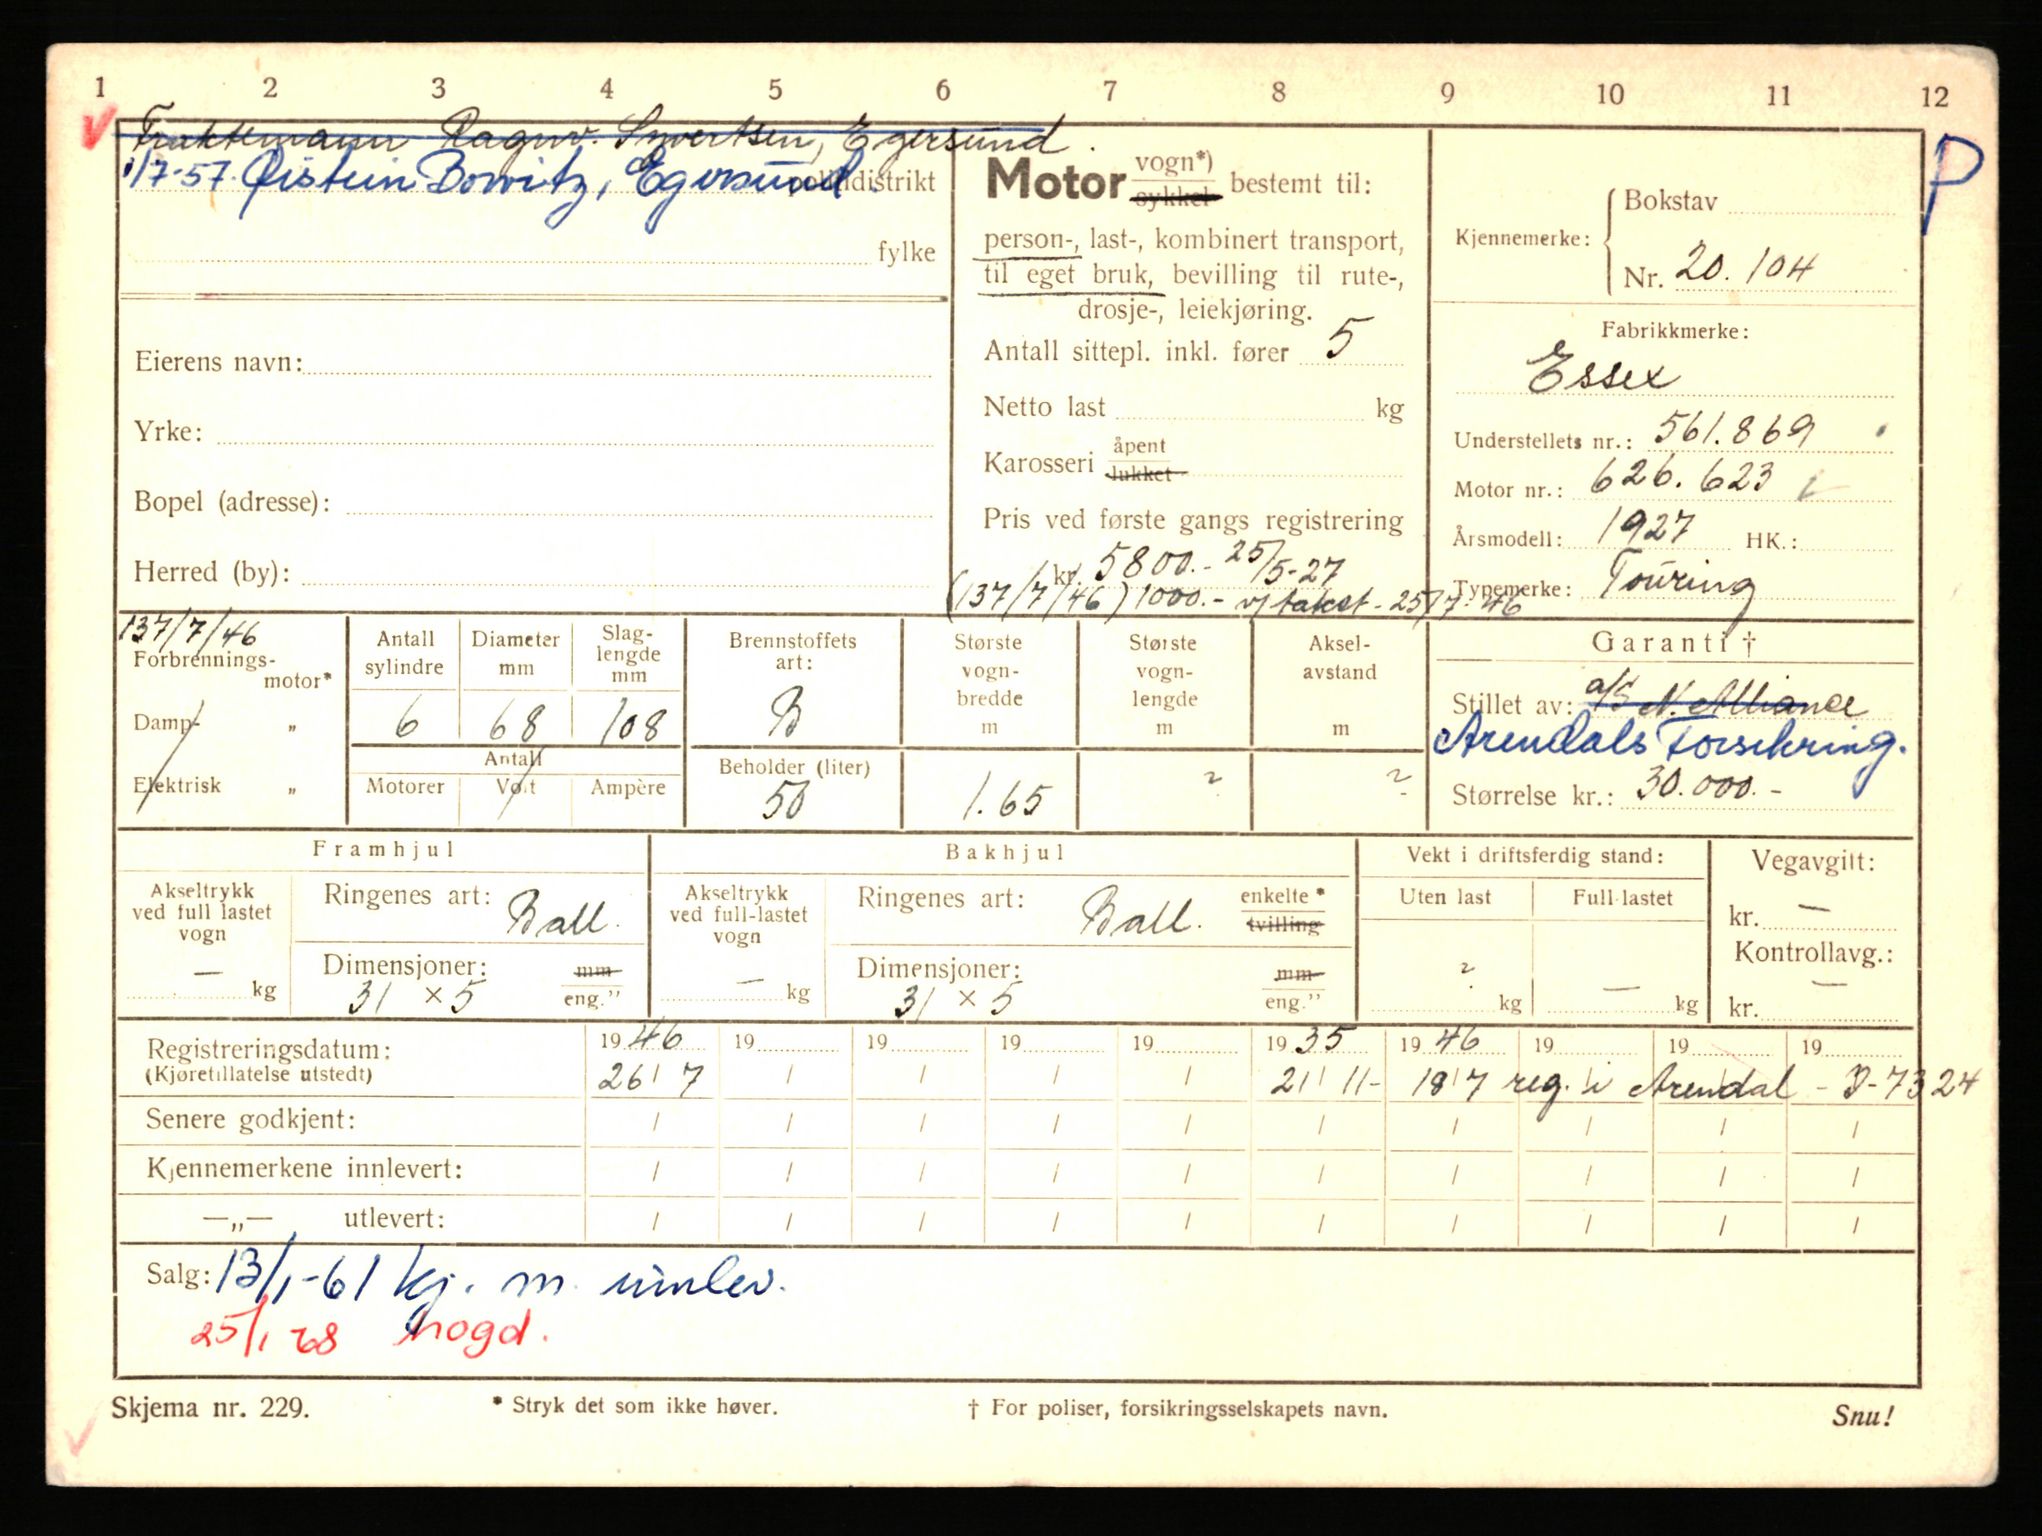 1 2 3 4 5 6 7 8 9 10 11 12
Fraktemann Ragnv. Syvertsen, Egersund.
1/7-57. Øistein Bowitz, Egersund. politidistrikt
fylke
Eierens navn:
Yrke:
Bopel (adresse):
Herred (by):
Motor vogn*) sykkel bestemt til:
person-, last-, kombinert transport,
til eget bruk, bevilling til rute-,
drosje-, leiekjøring.
Antall sittepl. inkl. fører 5
Netto last kg
Karosseri åpent lukket
Pris ved første gangs registrering
kr. 5800.- 25/5-27
(137/7/46) 1000.- v/ takst - 25/7-46
P
Kjennemerke: Bokstav
Nr. 20.104
Fabrikkmerke:
Essex
Understellets nr.: 561.869
Motor nr.: 626.623
Årsmodell: 1927 HK.:
Typemerke: Touring
137/7/46
Forbrennings-
motor*
Damp- „
Elektrisk „
Antall sylindre 6
Diameter mm 68
Slag-lengde mm 108
Antall
Motorer Volt Ampère
Brennstoffets art: B
Beholder (liter) 50
Største vogn-bredde m 1.65
Største vogn-lengde m ?
Aksel-avstand m ?
Garanti †
Stillet av: a/s N. Alliance
Arendals Forsikring.
Størrelse kr.: 30.000.-
Framhjul
Akseltrykk ved full lastet vogn — kg
Ringenes art: Ball.
Dimensjoner: 31 × 5 mm eng."
Bakhjul
Akseltrykk ved full-lastet vogn — kg
Ringenes art: Ball. enkelte* tvilling
Dimensjoner: 31 × 5 mm eng."
Vekt i driftsferdig stand:
Uten last ? kg
Full-lastet — kg
Vegavgift:
kr. —
Kontrollavg.:
kr. —
Registreringsdatum: 1946 19 19 19 19 1935 1946 19 19 19
(Kjøretillatelse utstedt) 26/7 / / / / 21/11- 18/7 reg. i Arendal - I-7324
Senere godkjent: / / / / / / / / / /
Kjennemerkene innlevert: / / / / / / / / / /
—„— utlevert: / / / / / / / / / /
Salg: 13/1-61 kj. m. innlev.
25/1 68 hogd.
Skjema nr. 229. * Stryk det som ikke høver. † For poliser, forsikringsselskapets navn. Snu!